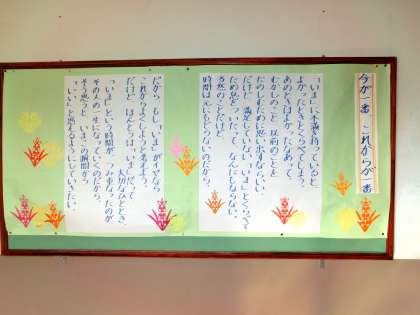 今が一番 これからが一番
「いま」に不満を持っていると
よかったときとくらべてしまう。
あのときはよかったなあ、って
むかしのこと 以前のことを
たのしむために思い出すのはいい。
だけど 満足していない「いま」とくらべて
ため息をついたって なんにもならない。
当然のことだけど
時間は元にもどらないのだから。
だから もし「いま」がイヤなら
これからよくしようと考えよう。
だけど ほんとうは「いま」だって 大切なひととき。
「いま」という時間が いつのまにか
その人の一生になっていくのだから。
そう思うと いまの瞬間から
「いい」と思えるようにしていきたい。